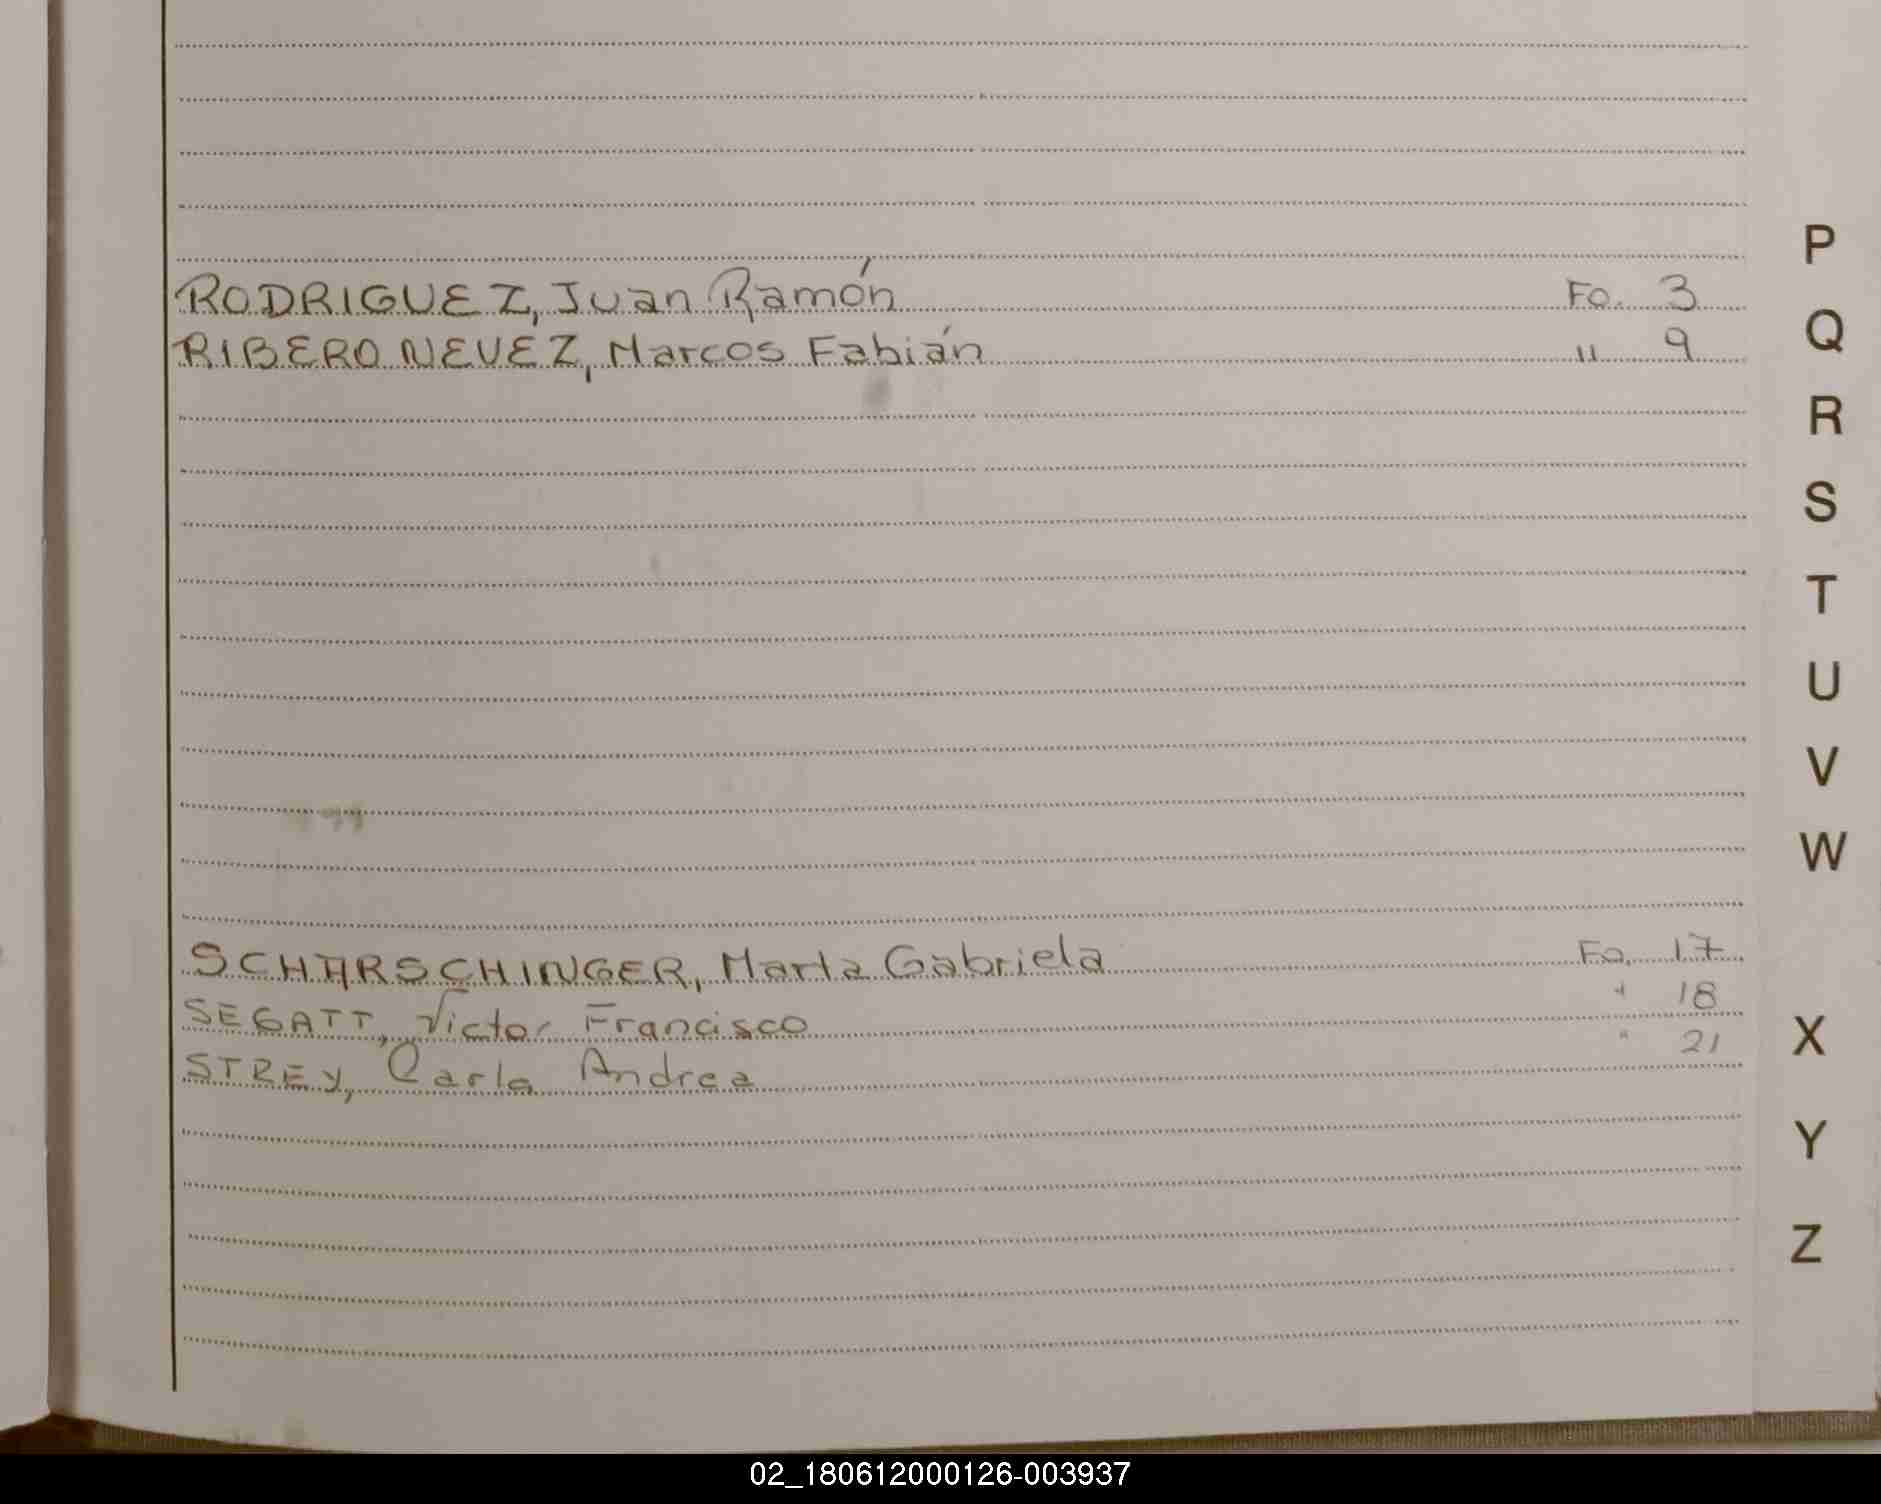 RODRIGUEZ, Juan Ramón Fo. 3
RIBERO NEVEZ, Marcos Fabián " 9
SCHARSCHINGER, Marla Gabriela Fo. 17
SEGATT, Victor Francisco " 18
STREY, Carla Andrea " 21
P
Q
R
S
T
U
V
W
X
Y
Z
02_180612000126-003937